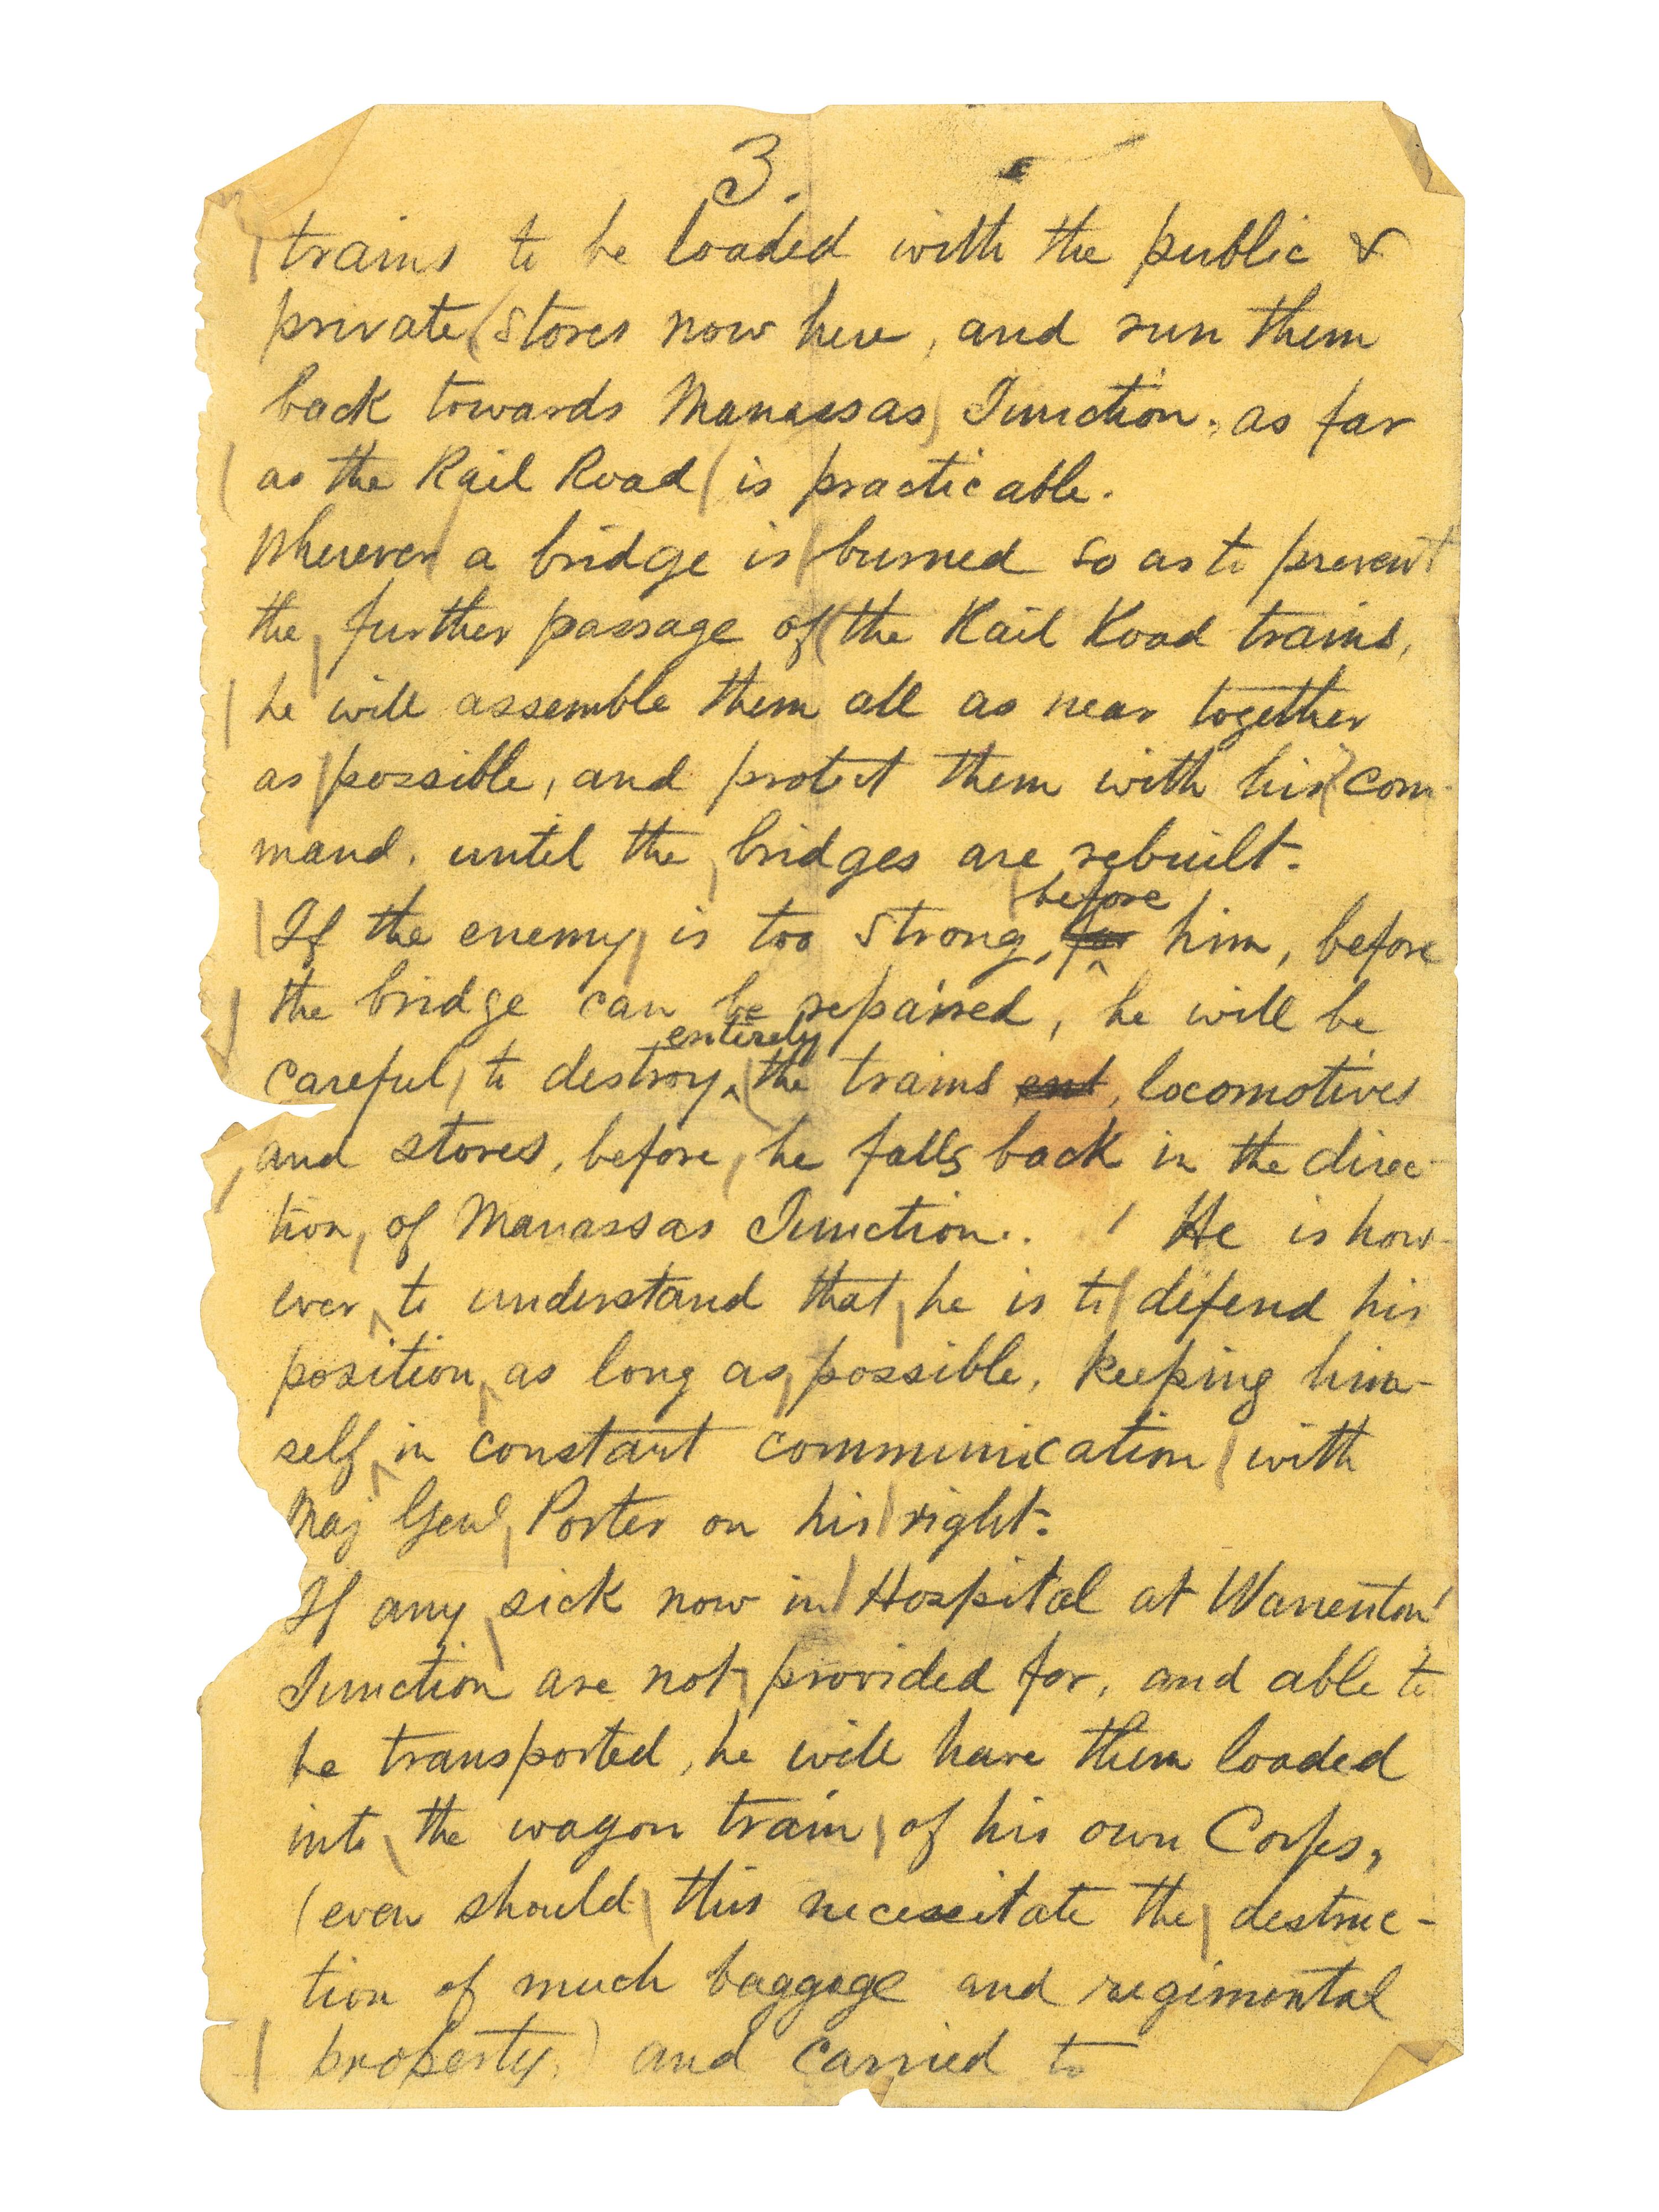 3.
trains to be loaded with the public &
private stores now here, and run them
back towards Manassas Junction, as far
as the Rail Road is practicable.
Wherever a bridge is burned so as to prevent
the further passage of the Rail Road trains,
he will assemble them all as near together
as possible, and protect them with his com-
mand. until the bridges are rebuilt.
before
If the enemy is too strong, for him, before
the bridge can be repaired, he will be
entirely
careful to destroy the trains ent, locomotives
and stores, before he falls back in the direc-
tion, of Manassas Junction. He is how-
ever to understand that he is to defend his
position as long as possible, keeping him-
self in constant communication with
Maj Genl Porter on his right.
If any sick now in Hospital at Warrenton
Junction are not provided for, and able to
be transported, he will have them loaded
into the wagon train of his own Corps,
(even should this necessitate the destruc-
tion of much baggage and regimental
property,) and carried to